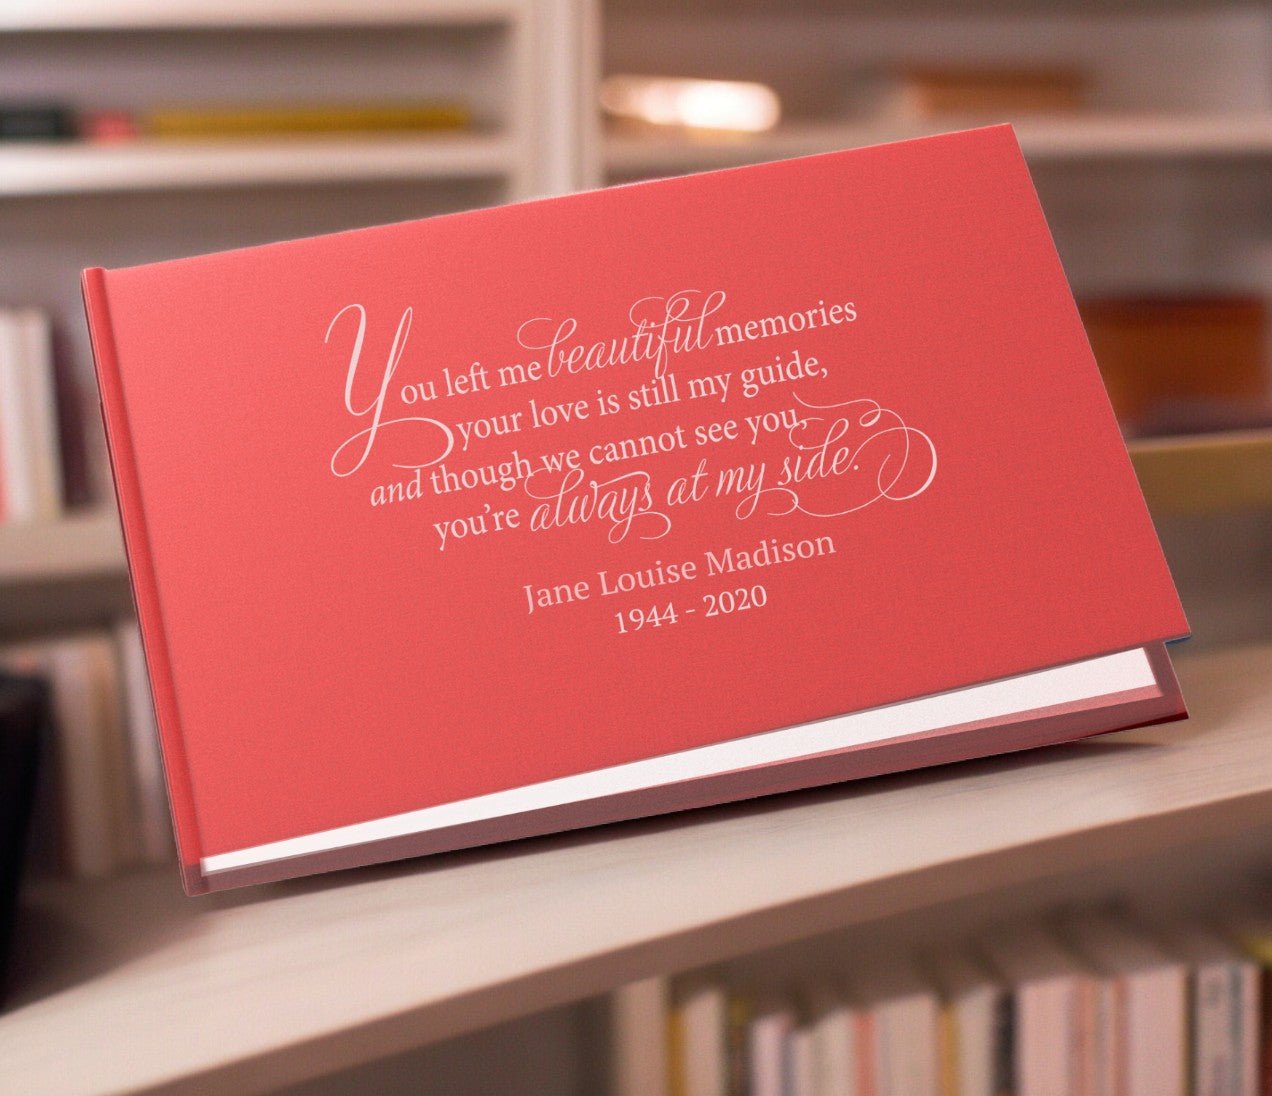 You left me beautiful memories
your love is still my guide,
and though we cannot see you,
you're always at my side.
Jane Louise Madison
1944 - 2020